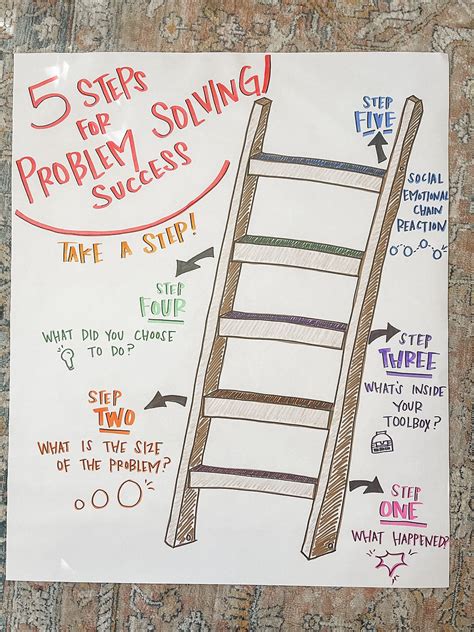 5 STEPS
FOR
PROBLEM SOLVING
SUCCESS
TAKE A STEP!
STEP
FIVE
SOCIAL
EMOTIONAL
CHAIN
REACTION
STEP
FOUR
WHAT DID YOU CHOOSE
TO DO?
STEP
THREE
WHAT'S INSIDE
YOUR
TOOLBOX?
STEP
TWO
WHAT IS THE SIZE
OF THE PROBLEM?
STEP
ONE
WHAT HAPPENED?